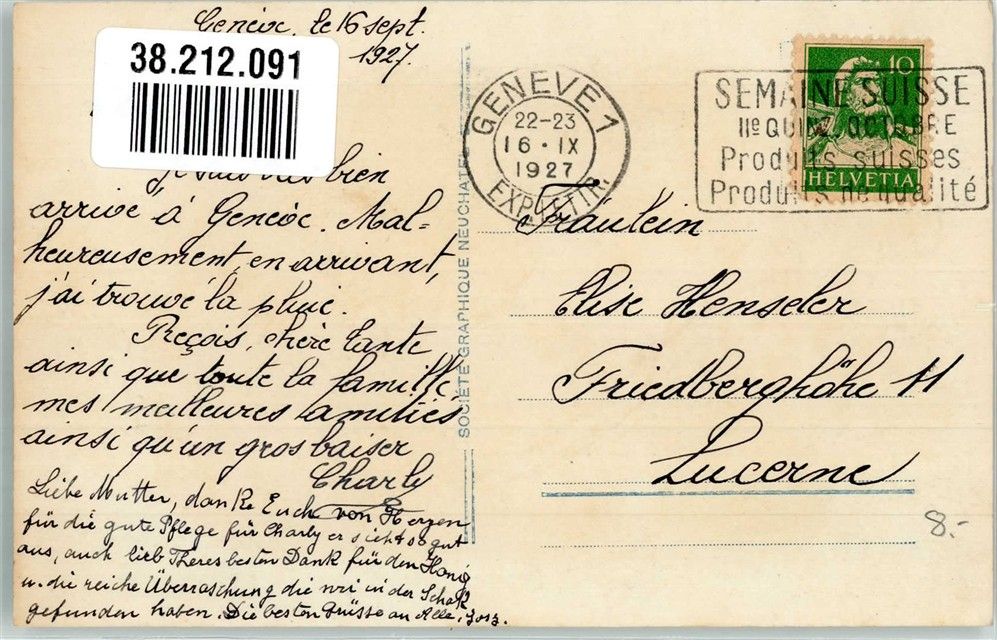 Genève, le 16 sept.
1927.
38.212.091
bien
arrivé à Genève. Mal=
heureusement, en arrivant,
j'ai trouvé la pluie.
Reçois, chère tante
ainsi que toute la famille
mes meilleures amitiés
ainsi qu'un gros baiser
Charly
Liebe Mutter, danke Euch von Herzen
für die gute Pflege für Charly er sieht so gut
aus, auch lieb Theres besten Dank für den Honig
u. die reiche Überraschung die wir in der Schak
gefunden haben. Die besten Grüsse an Alle.
SOCIÉTÉ GRAPHIQUE NEUCHATEL
GENÈVE 1
22-23
16·IX
1927
EXP. LETTR.
10
HELVETIA
SEMAINE SUISSE
IIe QUINZ. OCTOBRE
Produits suisses
Produits de qualité
Fräulein
Elise Henseler
Friedberghöhe 11
Lucerne
8.-